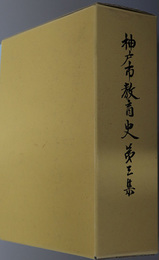 神戸市教育史第三集